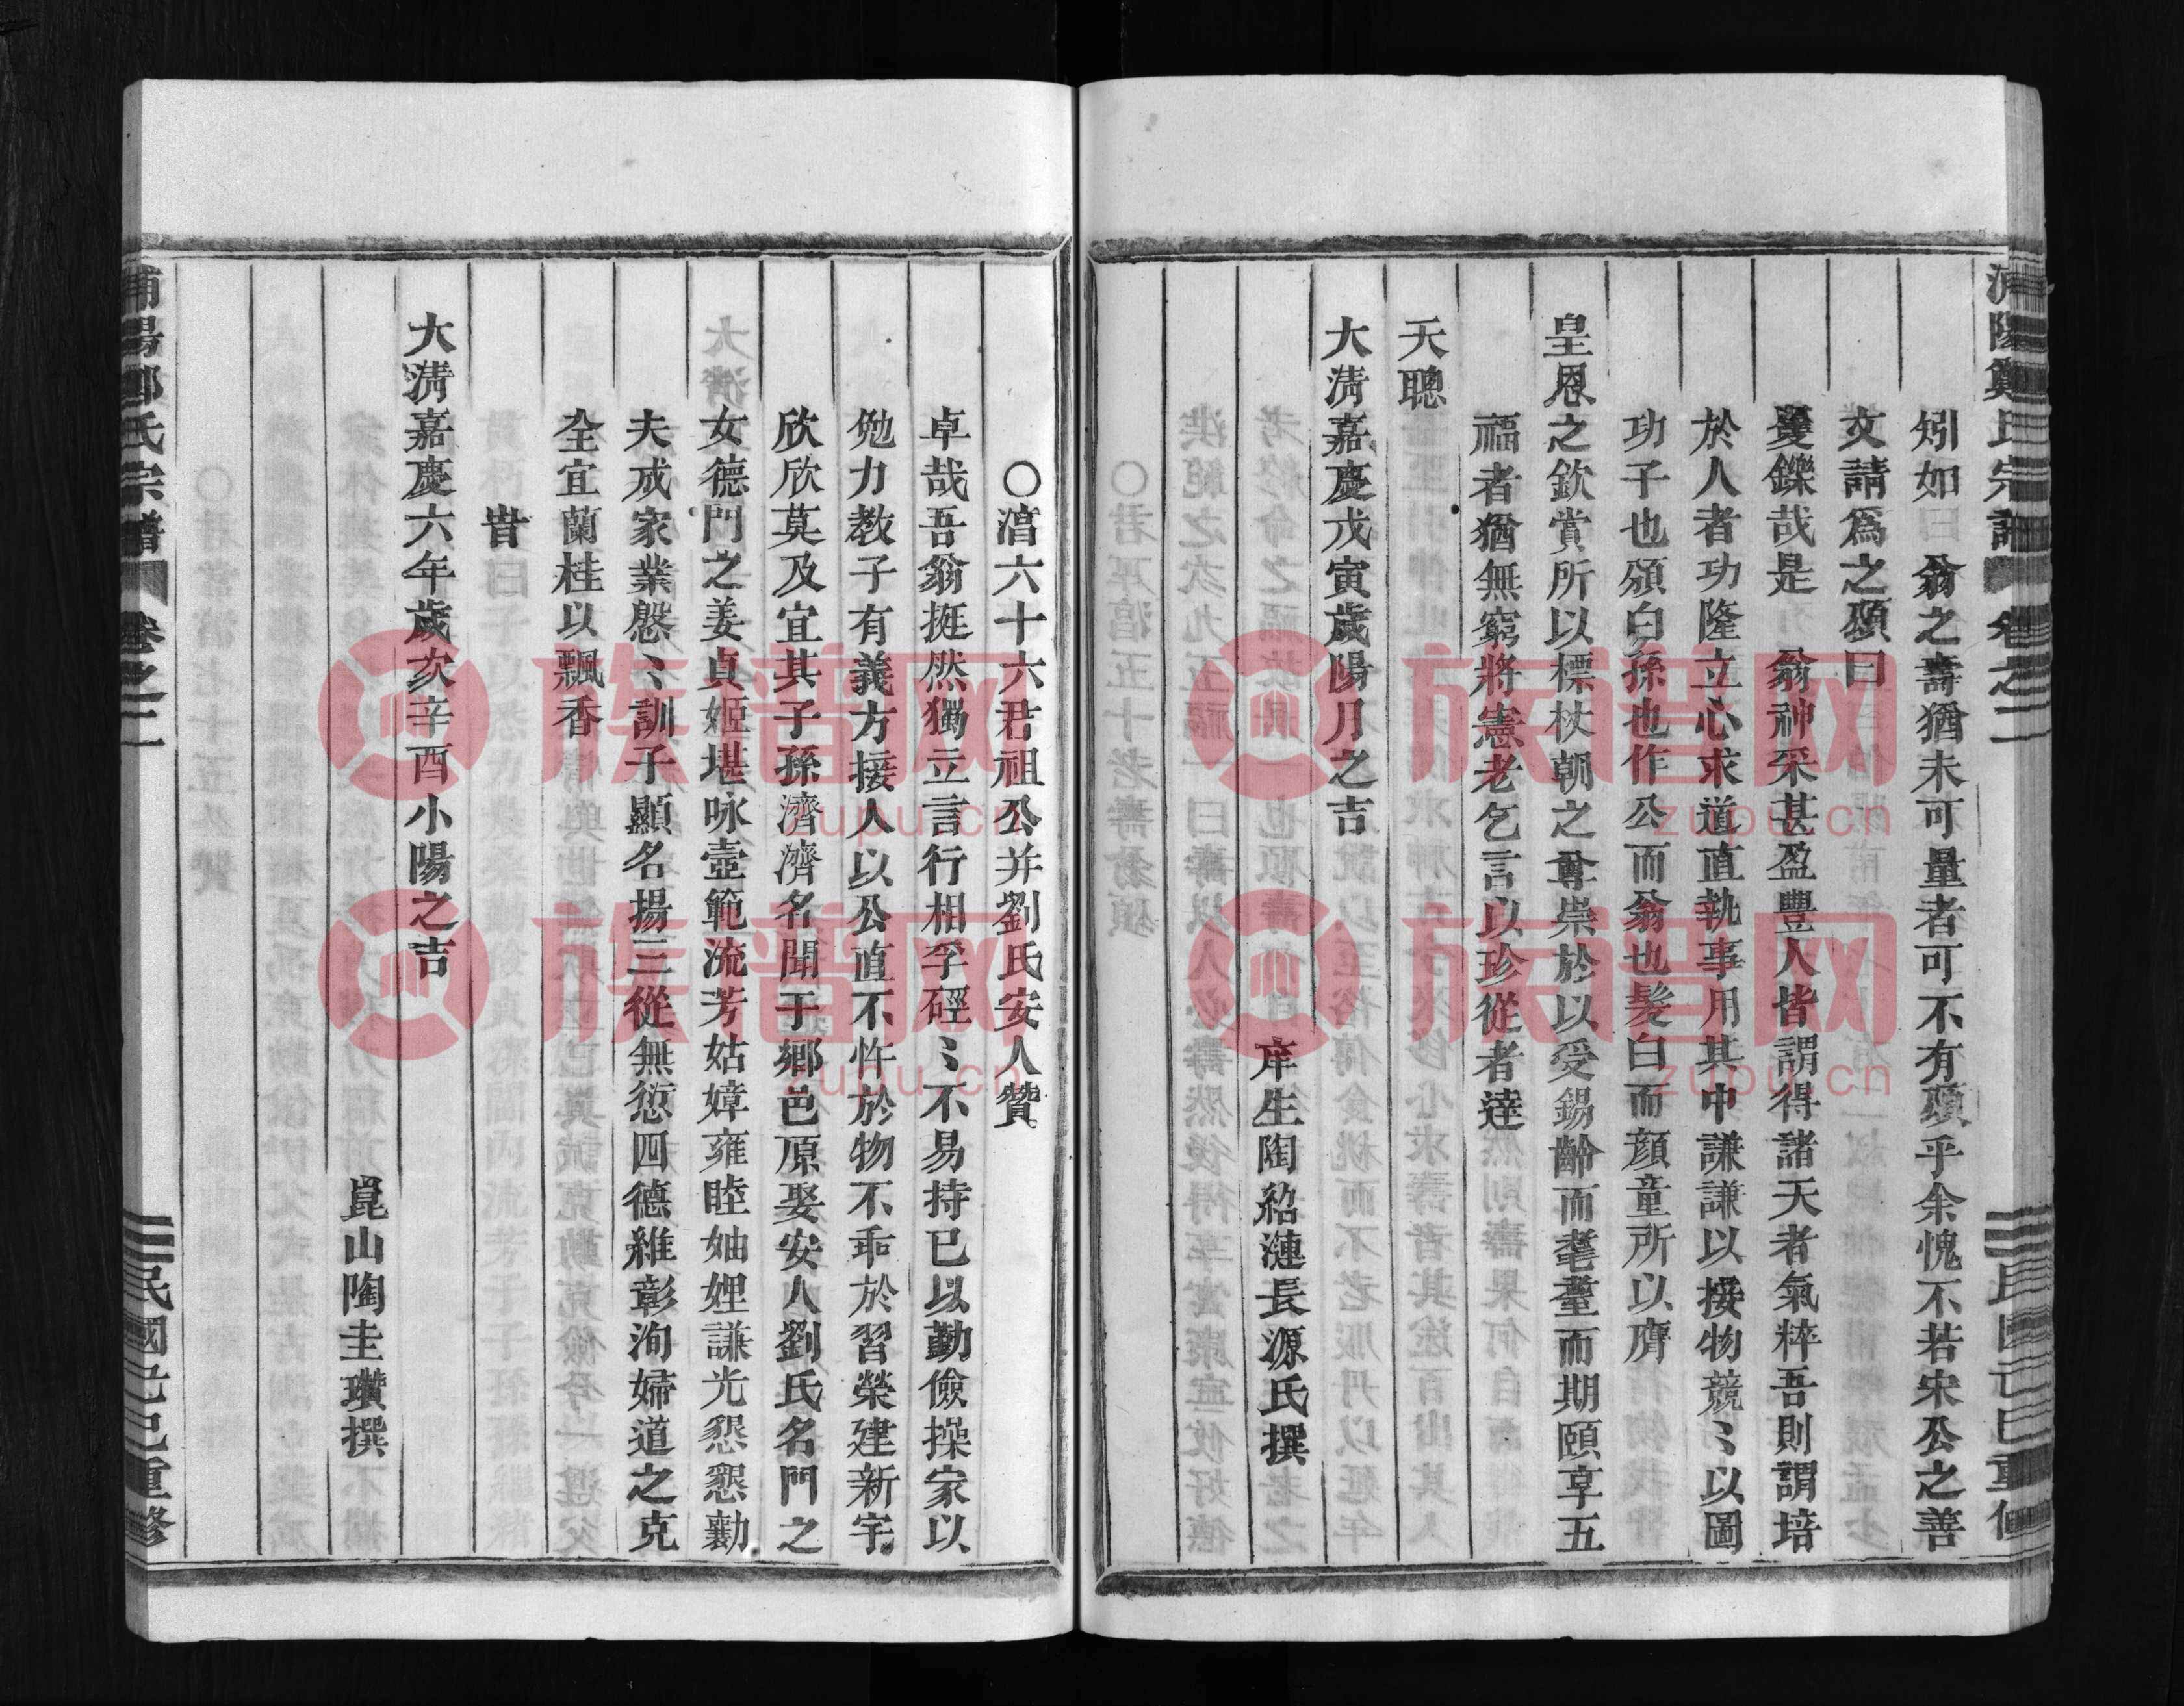 浦陽鄭氏宗譜 卷之二 民國己巳重修
矧如 翁之壽猶未可量者可不有頌乎余愧不若宋公之善
文請爲之頌曰
矍鑠哉是 翁神采甚盈豐人皆謂得諸天者氣粹吾則謂培
於人者功隆立心求道直執事用其中謙謙以接物兢〻以圖
功子也頒白孫也作公而翁也髮白而顔童所以膺
皇恩之欽賞所以標杖朝之尊崇於以受錫齡而耄耋而期頤享五
福者猶無窮將憲老乞言以珍從者達
天聰
大淸嘉慶戊寅歲陽月之吉
庠生陶紹漣長源氏撰
○湻六十六君祖公并劉氏安人贊
卓哉吾翁挺然獨立言行相孚硜〻不易持己以勤儉操家以
勉力教子有義方接人以公直不忤於物不乖於習榮建新宇
欣欣莫及宜其子孫濟濟名聞于鄉邑原娶安人劉氏名門之
女德門之姜貞姬堪咏壼範流芳姑嫜雍睦妯娌謙光懇懇勷
夫成家業慇〻訓子顯名揚三從無愆四德維彰洵婦道之克
全宜蘭桂以飄香
旹
大淸嘉慶六年歲次辛酉小陽之吉
崑山陶圭瓚撰
浦陽鄭氏宗譜 卷之二 民國己巳重修
族谱网
zupu.cn
族谱网
zupu.cn
族谱网
zupu.cn
族谱网
zupu.cn